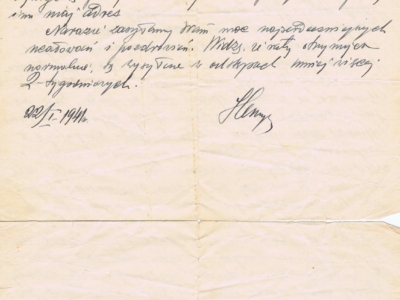 im mój adres
Narazie zasyłamy Wam moc najserdeczniejszych
ucałowań i pozdrowień. Widzę, że listy otrzymujecie
normalnie, są wysyłane w odstępach mniej więcej
2-tygodniowych.
22/I. 1941r.
Henryk